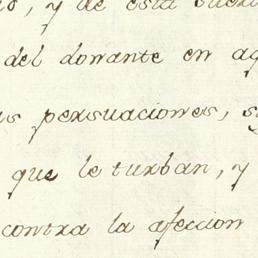 , y de esta
del donante en
persuaciones,
que le turban, y
contra la afeccion